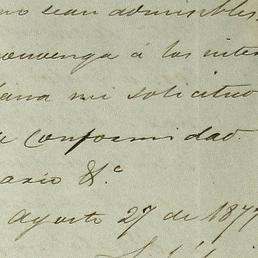 no sean admisibles
convenga á los inter
mi solicitud
de conformidad
ario &.c
Agosto 27 de 187